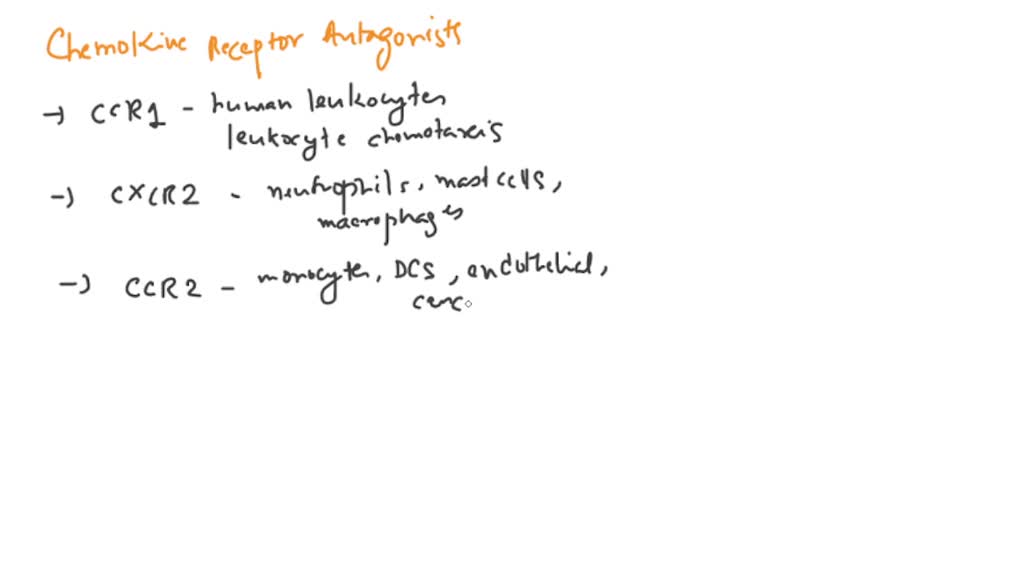 Chemokine Receptor Antagonists
→ CCR1 - human leukocytes
leukocyte chemotaxis
→ CXCR2 - neutrophils, mast cells,
macrophages
→ CCR2 - monocytes, DCS, endothelial,
canc